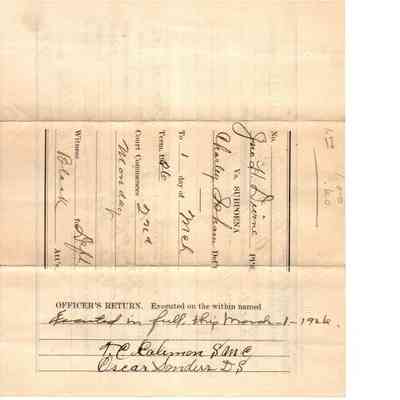 No.
Jno. H. Divine Pl'ff
Vs. SUBPOENA
Charley Isham Def't
To 1 day of Mch
Term, 1926
Court Commences 2nd
Monday
Witness for Deft
Black
Att'y
OFFICER'S RETURN. Executed on the within named
Executed in full, this March 1 - 1926.
T. C. S M C
Oscar Sanders D. S